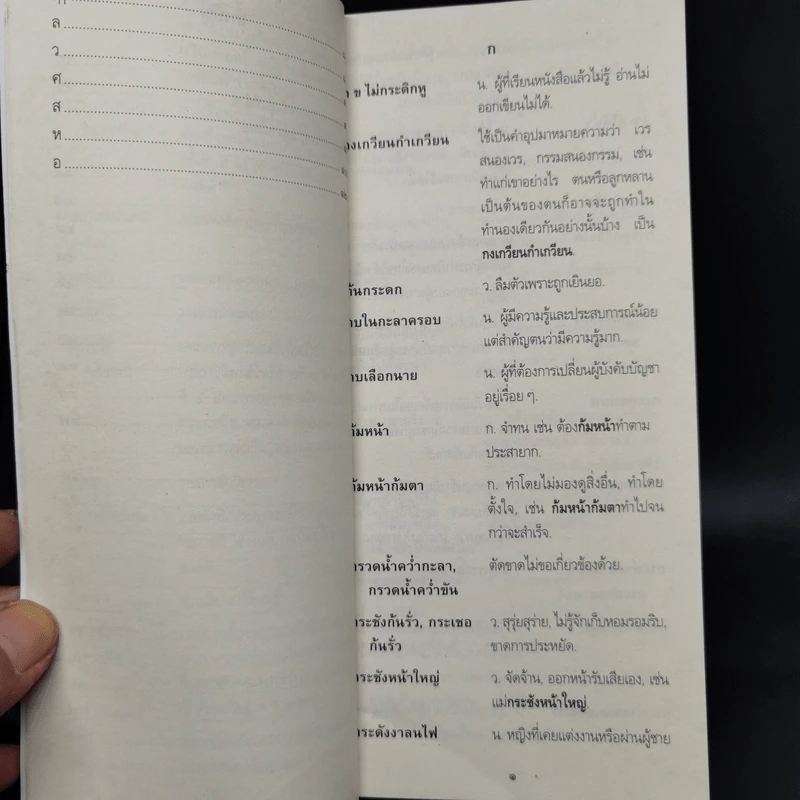 ล
ว
ศ
ส
ห
อ
ก
ข ไม่กระดิกหู
น. ผู้ที่เรียนหนังสือแล้วไม่รู้ อ่านไม่
ออกเขียนไม่ได้.
กงเกวียนกำเกวียน
ใช้เป็นคำอุปมาหมายความว่า เวร
สนองเวร, กรรมสนองกรรม, เช่น
ทำแก่เขาอย่างไร ตนหรือลูกหลาน
เป็นต้นของตนก็อาจจะถูกทำใน
ทำนองเดียวกันอย่างนั้นบ้าง เป็น
กงเกวียนกำเกวียน.
ก้นกระดก
ว. ลืมตัวเพราะถูกเยินยอ.
กบในกะลาครอบ
น. ผู้มีความรู้และประสบการณ์น้อย
แต่สำคัญตนว่ามีความรู้มาก.
กบเลือกนาย
น. ผู้ที่ต้องการเปลี่ยนผู้บังคับบัญชา
อยู่เรื่อย ๆ.
ก้มหน้า
ก. จำทน เช่น ต้องก้มหน้าทำตาม
ประสายาก.
ก้มหน้าก้มตา
ก. ทำโดยไม่มองดูสิ่งอื่น, ทำโดย
ตั้งใจ, เช่น ก้มหน้าก้มตาทำไปจน
กว่าจะสำเร็จ.
กรวดน้ำคว่ำกะลา,
กรวดน้ำคว่ำขัน
ตัดขาดไม่ขอเกี่ยวข้องด้วย.
กระชังก้นรั่ว, กระเชอ
ก้นรั่ว
ว. สุรุ่ยสุร่าย, ไม่รู้จักเก็บหอมรอมริบ,
ขาดการประหยัด.
กระชังหน้าใหญ่
ว. จัดจ้าน, ออกหน้ารับเสียเอง, เช่น
แม่กระชังหน้าใหญ่.
กระดังงาลนไฟ
น. หญิงที่เคยแต่งงานหรือผ่านผู้ชาย
๑